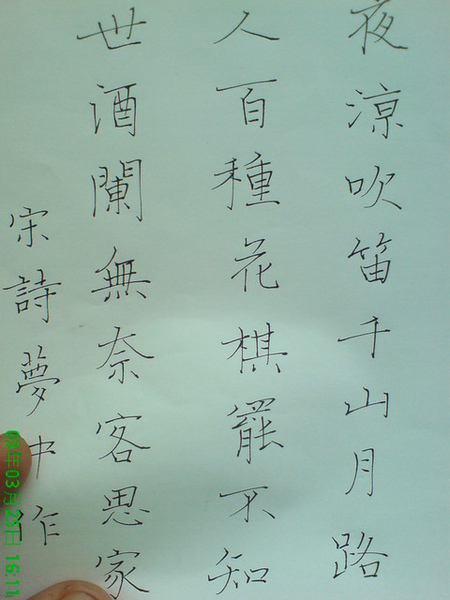 夜涼吹笛千山月路
人百種花棋罷不知
世酒闌無奈客思家
宋詩夢中作
09年03月25日 16:11